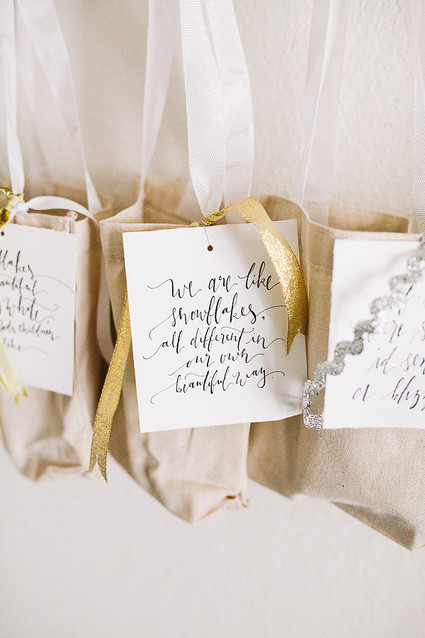 flakes
autiful
children
like
We are like
snowflakes,
all different in
our own
beautiful way.